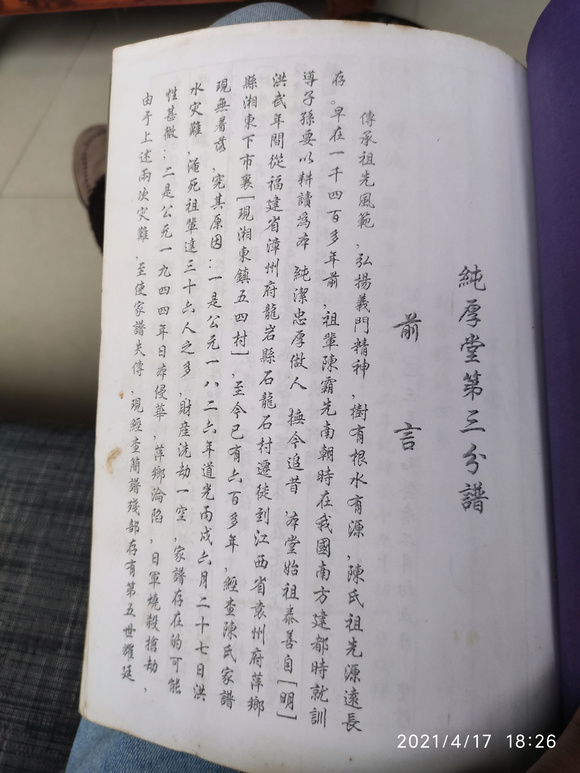 純厚堂第三分譜
前言
傳承祖先風範,弘揚義門精神,樹有根水有源,陳氏祖先源遠長
存。早在一千四百多年前,祖輩陳霸先南朝時在我國南方建都時就訓
導子孫要以耕讀為本 純潔忠厚做人 撫今追昔 本堂始祖泰善自[明]
洪武年間從福建省漳州府龍岩縣石龍石村遷徒到江西省袁州府萍鄉
縣湘東下市裏[現湘東鎮五四村],至今已有六百多年,經查陳氏家譜
現無着落,究其原因:一是公元一八二六年道光丙戌六月二十七日洪
水灾難,淹死祖輩達三十六人之多,財産洗劫一空,家譜存在的可能
性甚微;二是公元一九四四年日本侵華,萍鄉淪陷,日軍燒殺搶劫,
由于上述兩次灾難,至使家譜失傳,現經查簡譜殘部存有第五世耀廷
2021/4/17 18:26